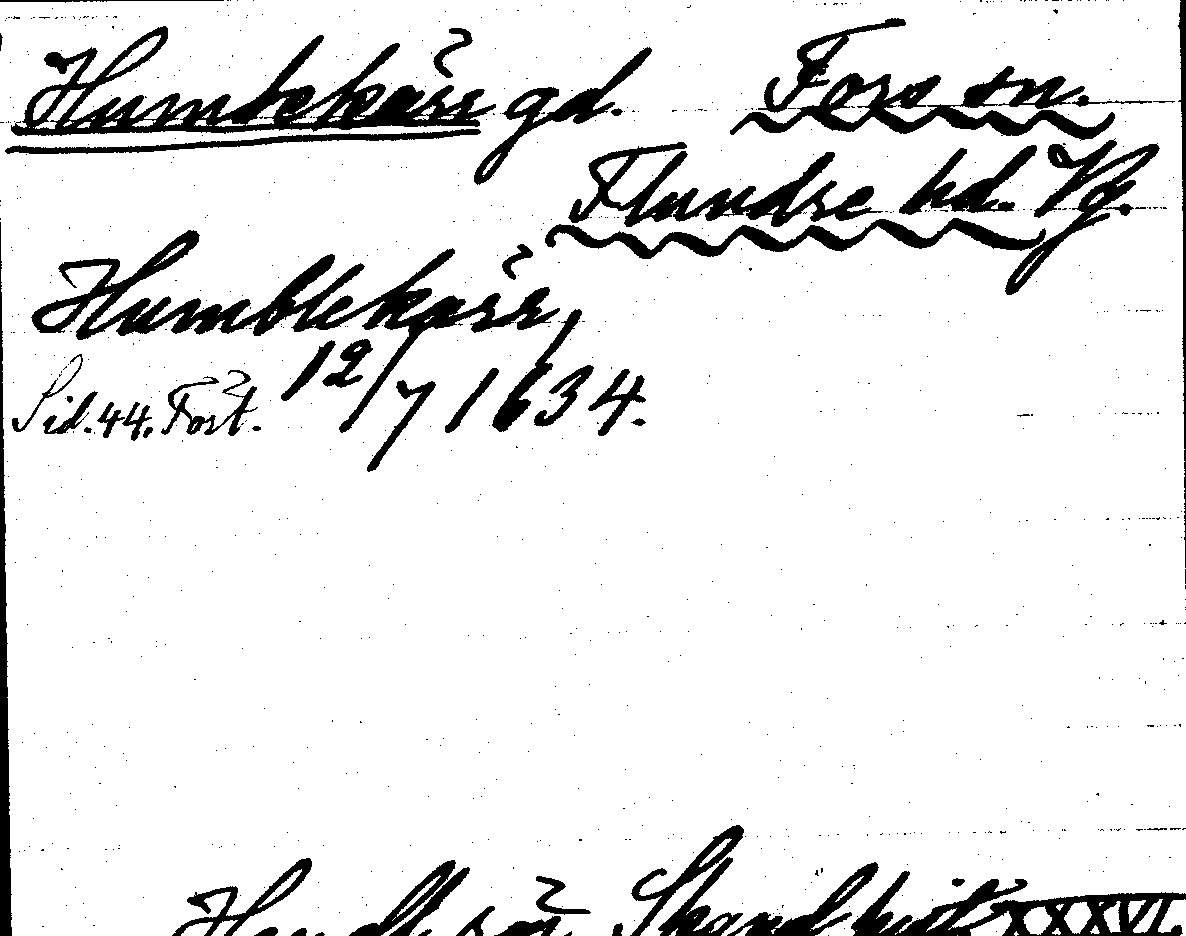 Humbekärr gd. Fors sn.
Flundre hd. Vg.
Humblekärr,
Sid. 44. Fört. 12/7 1634.
Handl. rör. Skand. hist. XXXVI.